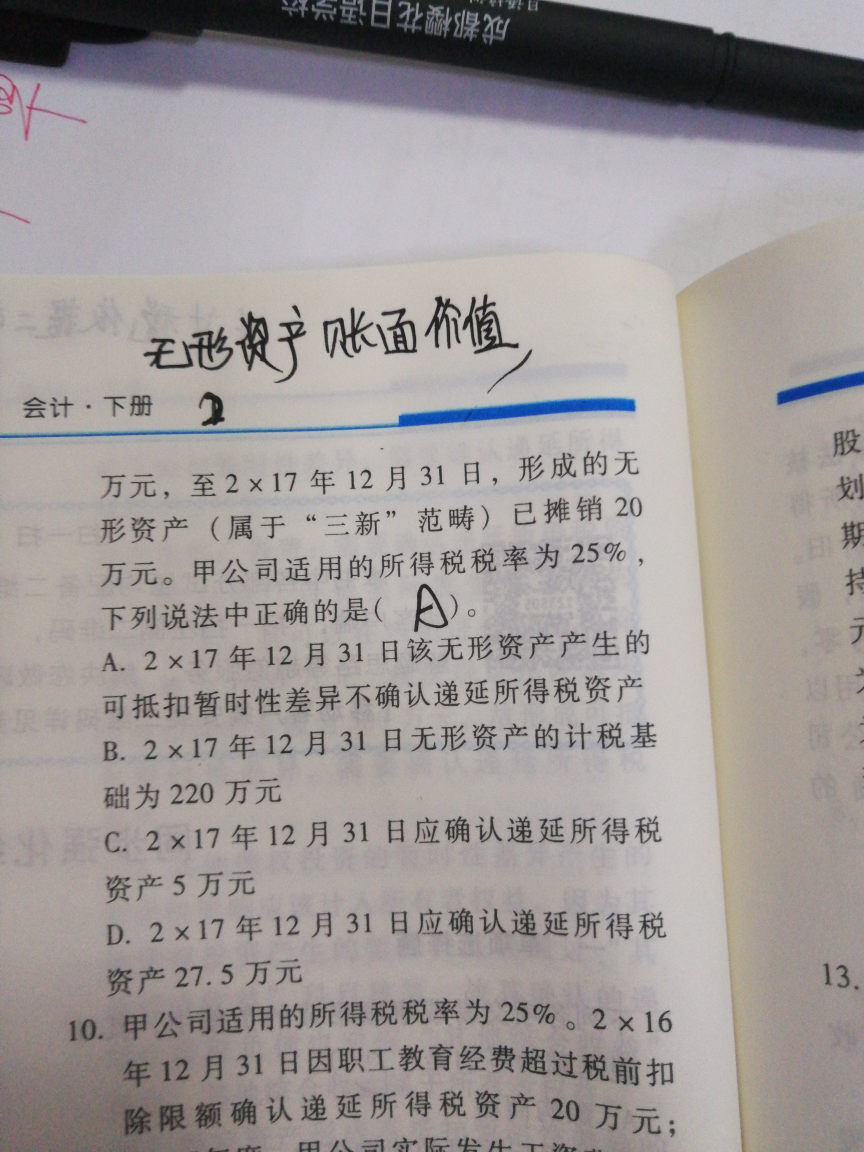 成都樱花日语学校
无形资产账面价值
会计·下册
万元，至2×17年12月31日，形成的无
形资产（属于“三新”范畴）已摊销20
万元。甲公司适用的所得税税率为25%，
下列说法中正确的是( A )。
A. 2×17年12月31日该无形资产产生的
可抵扣暂时性差异不确认递延所得税资产
B. 2×17年12月31日无形资产的计税基
础为220万元
C. 2×17年12月31日应确认递延所得税
资产5万元
D. 2×17年12月31日应确认递延所得税
资产27.5万元
10. 甲公司适用的所得税税率为25%。2×16
年12月31日因职工教育经费超过税前扣
除限额确认递延所得税资产20万元；
年度，甲公司实际发生工资
股
划
期
持
元
13.